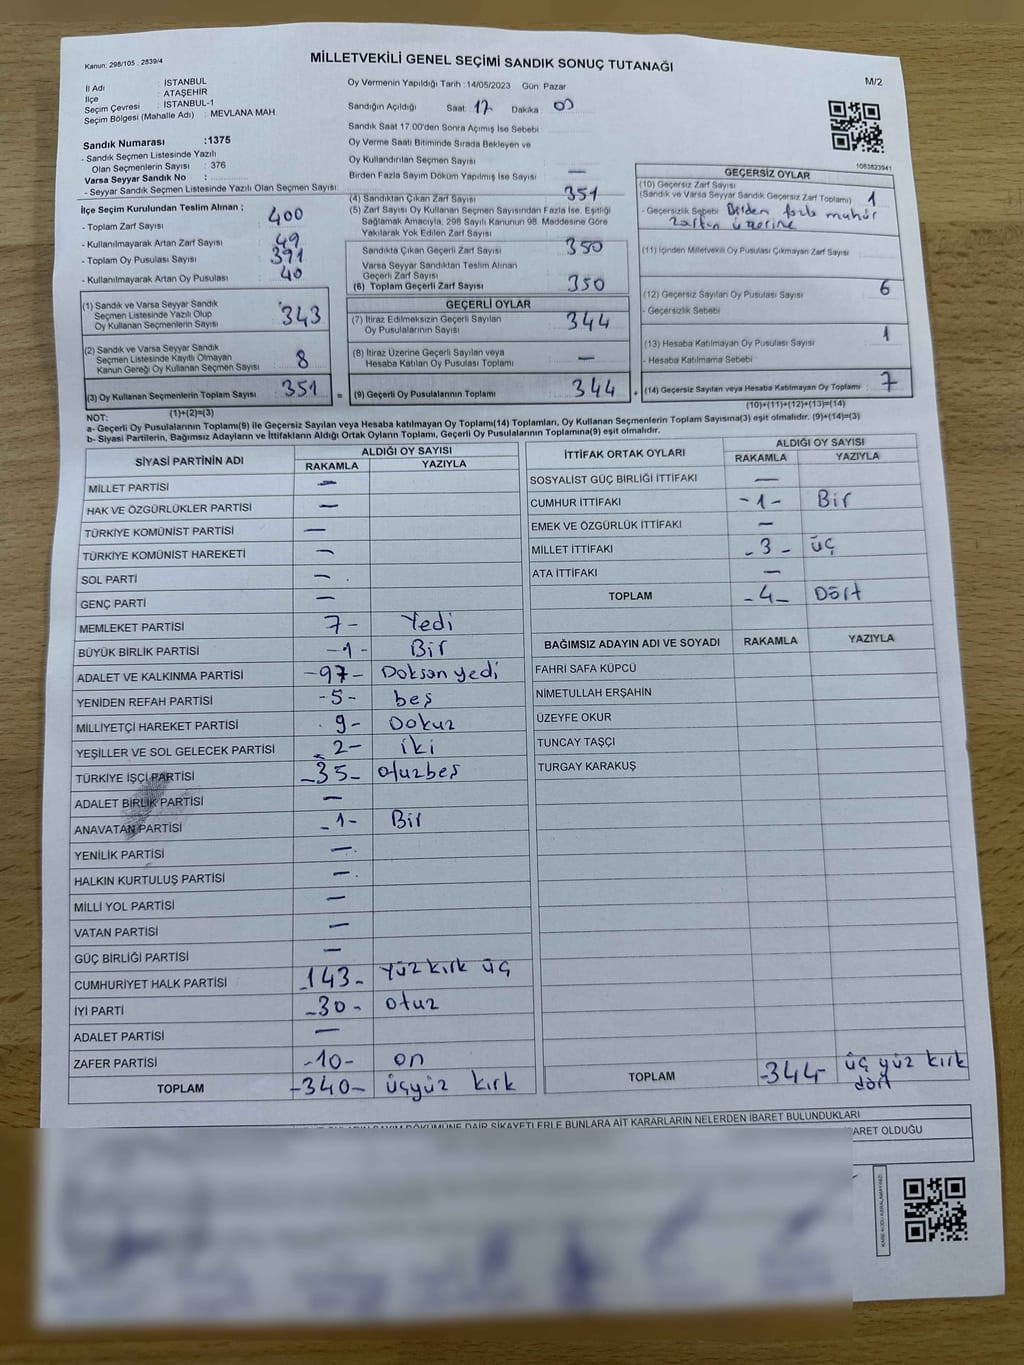 Kanun: 298/105 . 2839/4
MİLLETVEKİLİ GENEL SEÇİMİ SANDIK SONUÇ TUTANAĞI
M/2
İl Adı : İSTANBUL
İlçe : ATAŞEHİR
Seçim Çevresi : İSTANBUL-1
Seçim Bölgesi (Mahalle Adı) : MEVLANA MAH.
Sandık Numarası :1375
- Sandık Seçmen Listesinde Yazılı
Olan Seçmenlerin Sayısı : 376
Varsa Seyyar Sandık No :
- Seyyar Sandık Seçmen Listesinde Yazılı Olan Seçmen Sayısı
Oy Vermenin Yapıldığı Tarih :14/05/2023 Gün: Pazar
Sandığın Açıldığı Saat: 17 Dakika :
Sandık Saat 17:00'den Sonra Açımış İse Sebebi :
Oy Verme Saati Bitiminde Sırada Bekleyen ve
Oy Kullandırılan Seçmen Sayısı
Birden Fazla Sayım Döküm Yapılmış İse Sayısı : —
1083823941
İlçe Seçim Kurulundan Teslim Alınan ;
- Toplam Zarf Sayısı : 400
- Kullanılmayarak Artan Zarf Sayısı : 49
- Toplam Oy Pusulası Sayısı : 391
- Kullanılmayarak Artan Oy Pusulası : 40
(1) Sandık ve Varsa Seyyar Sandık
Seçmen Listesinde Yazılı Olup
Oy Kullanan Seçmenlerin Sayısı : 343
(2) Sandık ve Varsa Seyyar Sandık
Seçmen Listesinde Kayıtlı Olmayan
Kanun Gereği Oy Kullanan Seçmen Sayısı : 8
(3) Oy Kullanan Seçmenlerin Toplam Sayısı : 351
(1)+(2)=(3)
(4) Sandıktan Çıkan Zarf Sayısı : 351
(5) Zarf Sayısı Oy Kullanan Seçmen Sayısından Fazla İse, Eşitliği
Sağlamak Amacıyla, 298 Sayılı Kanunun 98. Maddesine Göre
Yakılarak Yok Edilen Zarf Sayısı
Sandıkta Çıkan Geçerli Zarf Sayısı : 350
Varsa Seyyar Sandıktan Teslim Alınan
Geçerli Zarf Sayısı
(6) Toplam Geçerli Zarf Sayısı : 350
GEÇERLİ OYLAR
(7) İtiraz Edilmeksizin Geçerli Sayılan
Oy Pusulalarının Sayısı : 344
(8) İtiraz Üzerine Geçerli Sayılan veya
Hesaba Katılan Oy Pusulası Toplamı : —
= (9) Geçerli Oy Pusulalarının Toplamı : 344
GEÇERSİZ OYLAR
(10) Geçersiz Zarf Sayısı
(Sandık ve Varsa Seyyar Sandık Geçersiz Zarf Toplamı) : 1
- Geçersizlik Sebebi : Birden fazla mühür
zarfın üzerine
(11) İçinden Milletvekili Oy Pusulası Çıkmayan Zarf Sayısı
(12) Geçersiz Sayılan Oy Pusulası Sayısı : 6
- Geçersizlik Sebebi
(13) Hesaba Katılmayan Oy Pusulası Sayısı : 1
- Hesaba Katılmama Sebebi
+ (14) Geçersiz Sayılan veya Hesaba Katılmayan Oy Toplamı : 7
(10)+(11)+(12)+(13)=(14)
NOT:
a- Geçerli Oy Pusulalarının Toplamı(9) ile Geçersiz Sayılan veya Hesaba katılmayan Oy Toplamı(14) Toplamları, Oy Kullanan Seçmenlerin Toplam Sayısına(3) eşit olmalıdır. (9)+(14)=(3)
b- Siyasi Partilerin, Bağımsız Adayların ve İttifakların Aldığı Ortak Oyların Toplamı, Geçerli Oy Pusulalarının Toplamına(9) eşit olmalıdır.
SİYASİ PARTİNİN ADI ALDIĞI OY SAYISI
RAKAMLA YAZIYLA
MİLLET PARTİSİ —
HAK VE ÖZGÜRLÜKLER PARTİSİ —
TÜRKİYE KOMÜNİST PARTİSİ —
TÜRKİYE KOMÜNİST HAREKETİ —
SOL PARTİ —
GENÇ PARTİ —
MEMLEKET PARTİSİ 7- Yedi
BÜYÜK BİRLİK PARTİSİ -1- Bir
ADALET VE KALKINMA PARTİSİ -97- Doksan yedi
YENİDEN REFAH PARTİSİ -5- beş
MİLLİYETÇİ HAREKET PARTİSİ 9- Dokuz
YEŞİLLER VE SOL GELECEK PARTİSİ 2- iki
TÜRKİYE İŞÇİ PARTİSİ -35- otuzbeş
ADALET BİRLİK PARTİSİ —
ANAVATAN PARTİSİ -1- Bir
YENİLİK PARTİSİ —
HALKIN KURTULUŞ PARTİSİ —
MİLLİ YOL PARTİSİ —
VATAN PARTİSİ —
GÜÇ BİRLİĞİ PARTİSİ —
CUMHURİYET HALK PARTİSİ -143- Yüz kırk üç
İYİ PARTİ -30- otuz
ADALET PARTİSİ —
ZAFER PARTİSİ -10- on
TOPLAM -340- üçyüz kırk
İTTİFAK ORTAK OYLARI ALDIĞI OY SAYISI
RAKAMLA YAZIYLA
SOSYALİST GÜÇ BİRLİĞİ İTTİFAKI —
CUMHUR İTTİFAKI -1- Bir
EMEK VE ÖZGÜRLÜK İTTİFAKI —
MİLLET İTTİFAKI -3- üç
ATA İTTİFAKI —
TOPLAM -4- Dört
BAĞIMSIZ ADAYIN ADI VE SOYADI RAKAMLA YAZIYLA
FAHRİ SAFA KÜPCÜ
NİMETULLAH ERŞAHİN
ÜZEYFE OKUR
TUNCAY TAŞÇI
TURGAY KARAKUŞ
TOPLAM -344- üç yüz kırk
dört
SAYIM DÖKÜMÜNE DAİR ŞİKAYETLERLE BUNLARA AİT KARARLARIN NELERDEN İBARET BULUNDUKLARI
OLDUĞU